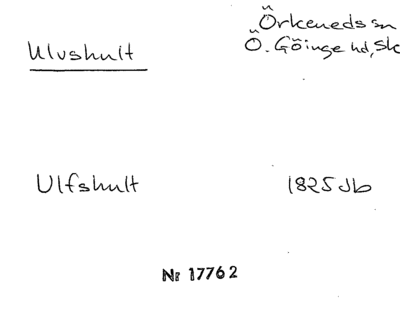 Örkeneds sn
Ulvshult Ö. Göinge hd, Sk
Ulfshult 1825 Jb
Nr 17762